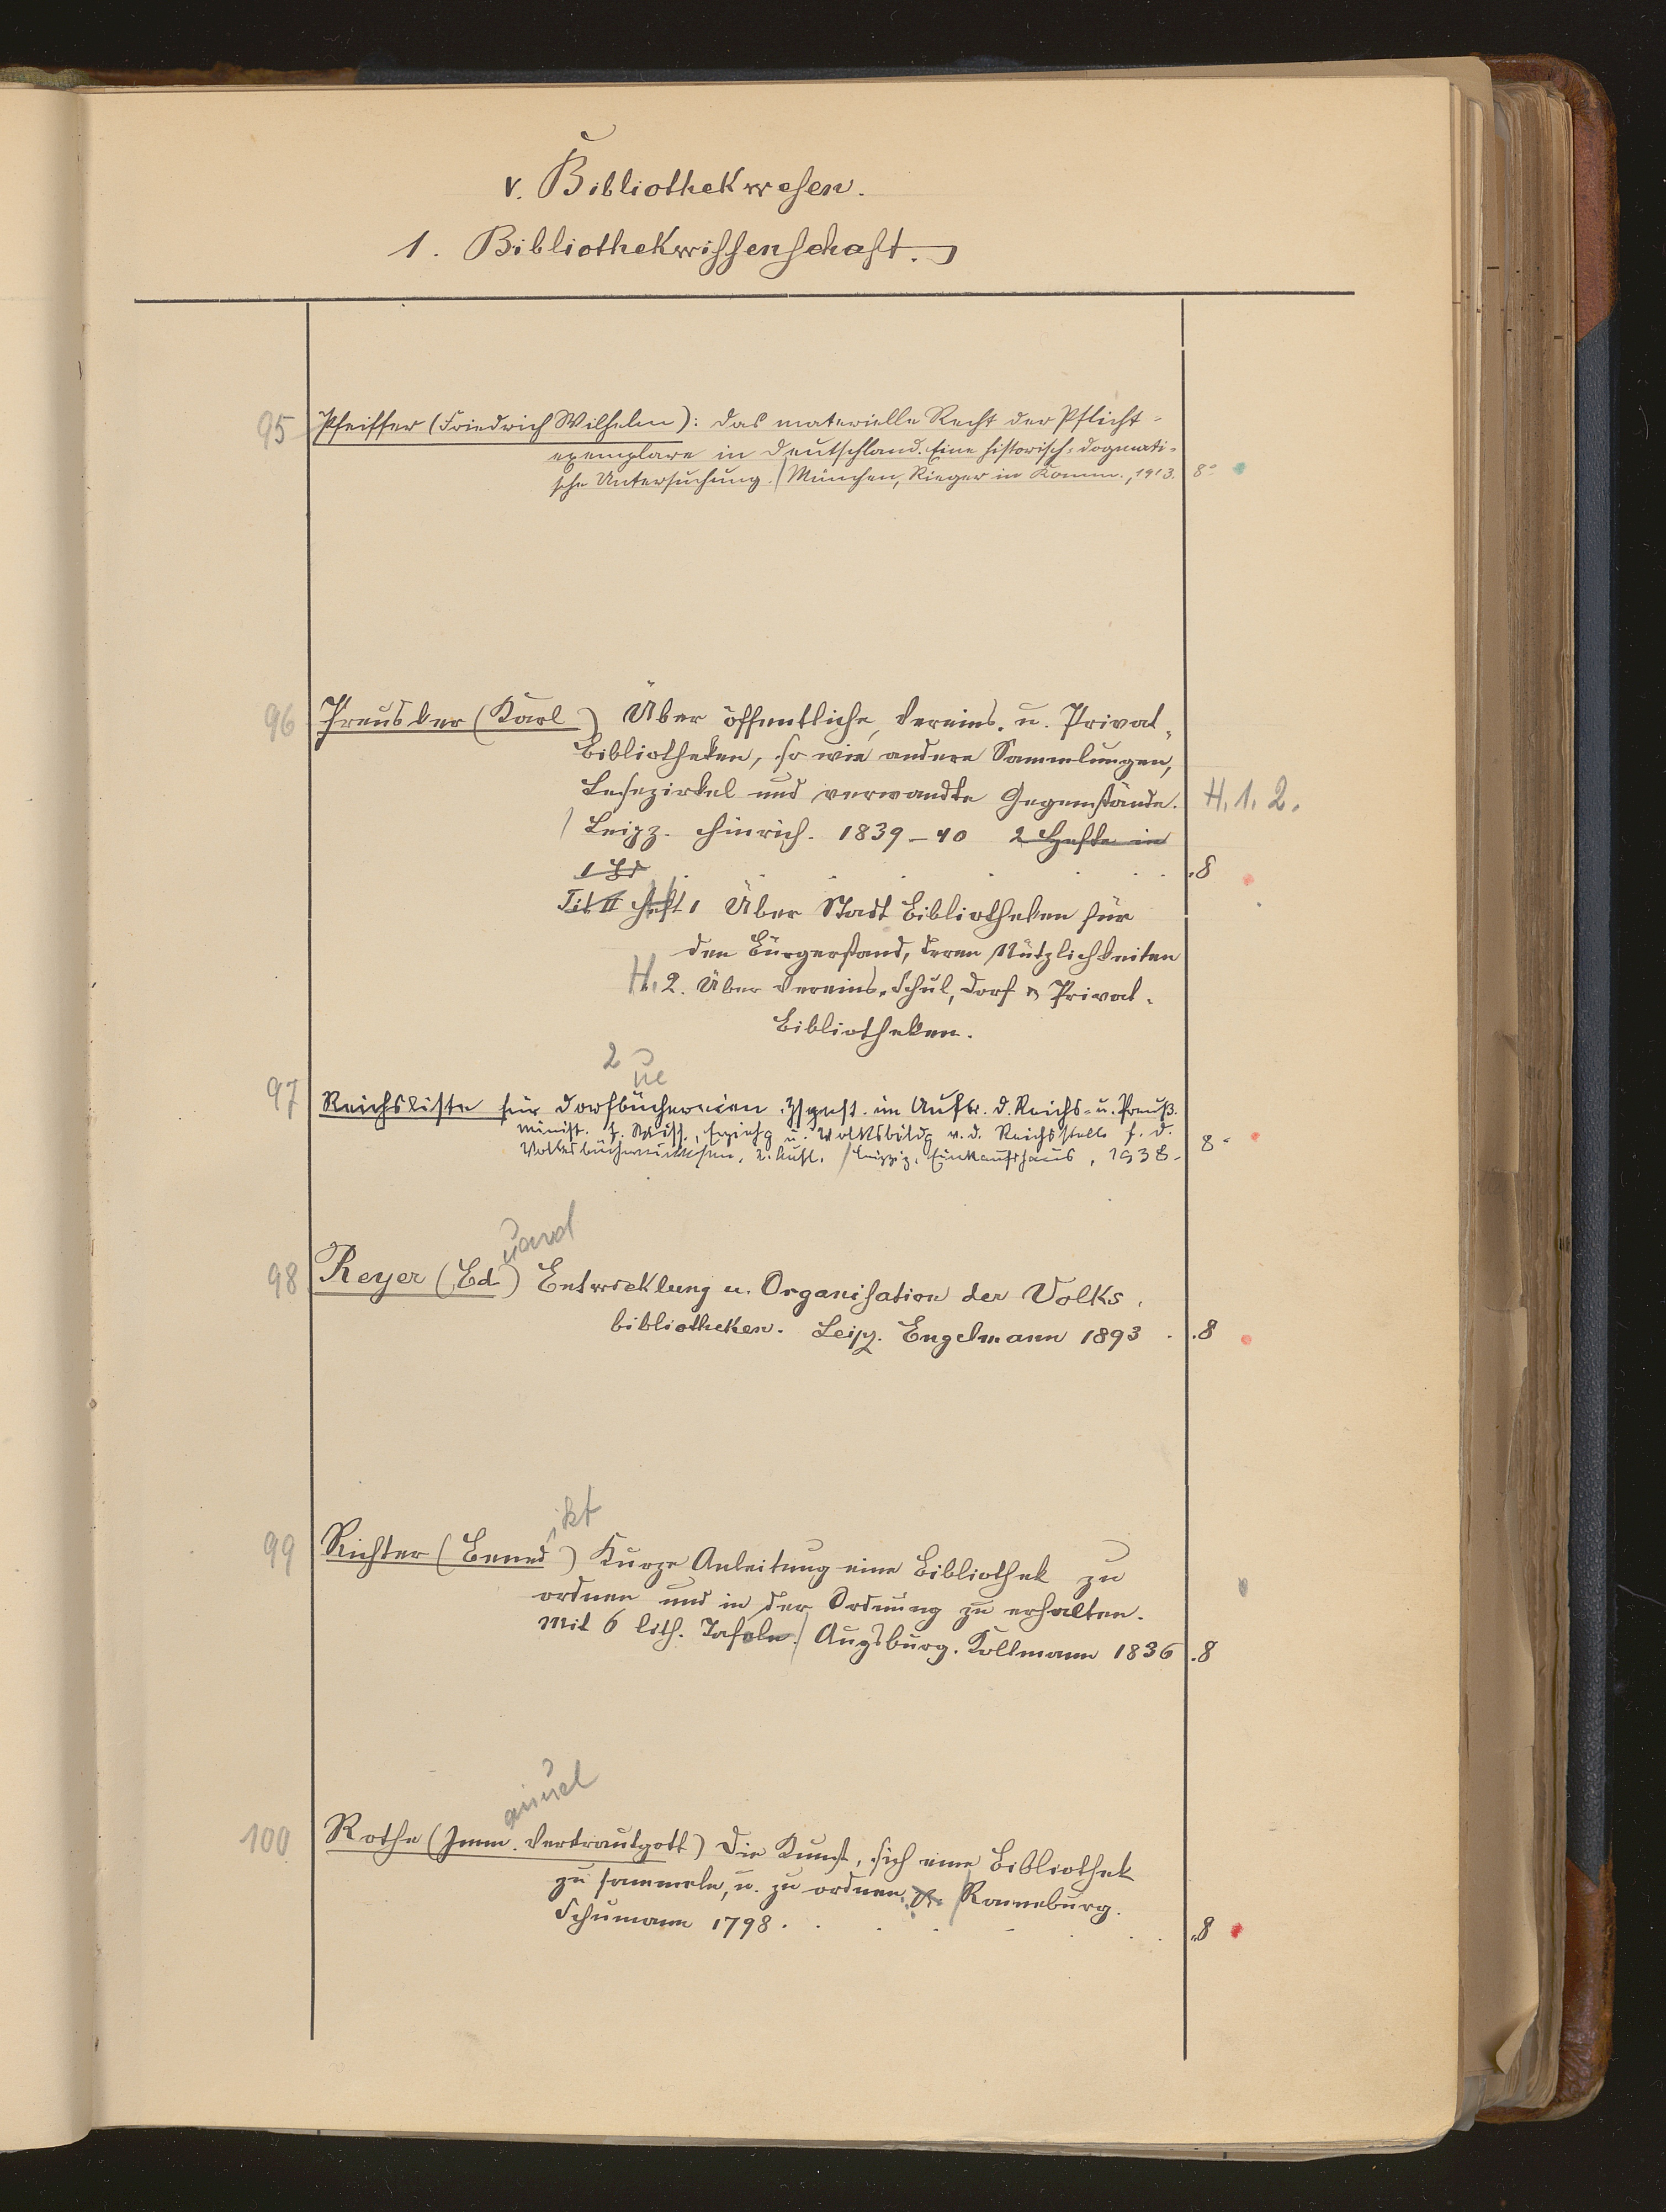 V. Bibliothekwesen.
1. Bibliothekwissenschaft.
95 Pfeiffer (Friedrich Wilhelm): Das materielle Recht der Pflicht-
exemplare in Deutschland. Eine historisch-dogmati-
sche Untersuchung. / München, Rieger in Komm., 1913. 8°
96 Preusker (Karl) Über öffentliche, Vereins- u. Privat-
bibliotheken, so wie andere Sammlungen,
Lesezirkel und verwandte Gegenstände. H. 1. 2.
/ Leipz. Hinrich. 1839-40 2 Hefte in
1 Bd . . . . . . 8
Tit II Heft 1 Über Stadt Bibliotheken für
den Bürgerstand, deren Nützlichkeiten
H. 2. Über Vereins-, Schul, Dorf & Privat-
bibliotheken.
2 ue
97 Reichsliste für Dorfbüchereien. Zsgest. im Auftr. d. Reichs- u. Preuß.
Minist. f. Wiss., Erziehg u. Volksbildg v. d. Reichsstelle f. d.
Volksbüchereiwesen. 2. Aufl. / Leipzig, Einkaufshaus, 1938. 8°
uard
98 Reyer (Ed.) Entwicklung u. Organisation der Volks-
bibliotheken. Leipz. Engelmann 1893 . . 8
ikt
99 Richter (Bened) Kurze Anleitung eine Bibliothek zu
ordnen und in der Ordnung zu erhalten.
Mit 6 lith. Tafeln. / Augsburg. Kollmann 1836 . 8
anuel
100 Rothe (Imm. Vertraugott) Die Kunst, sich eine Bibliothek
zu sammeln, u. zu ordnen. / Ronneburg.
Schumann 1798 . . . . . . 8